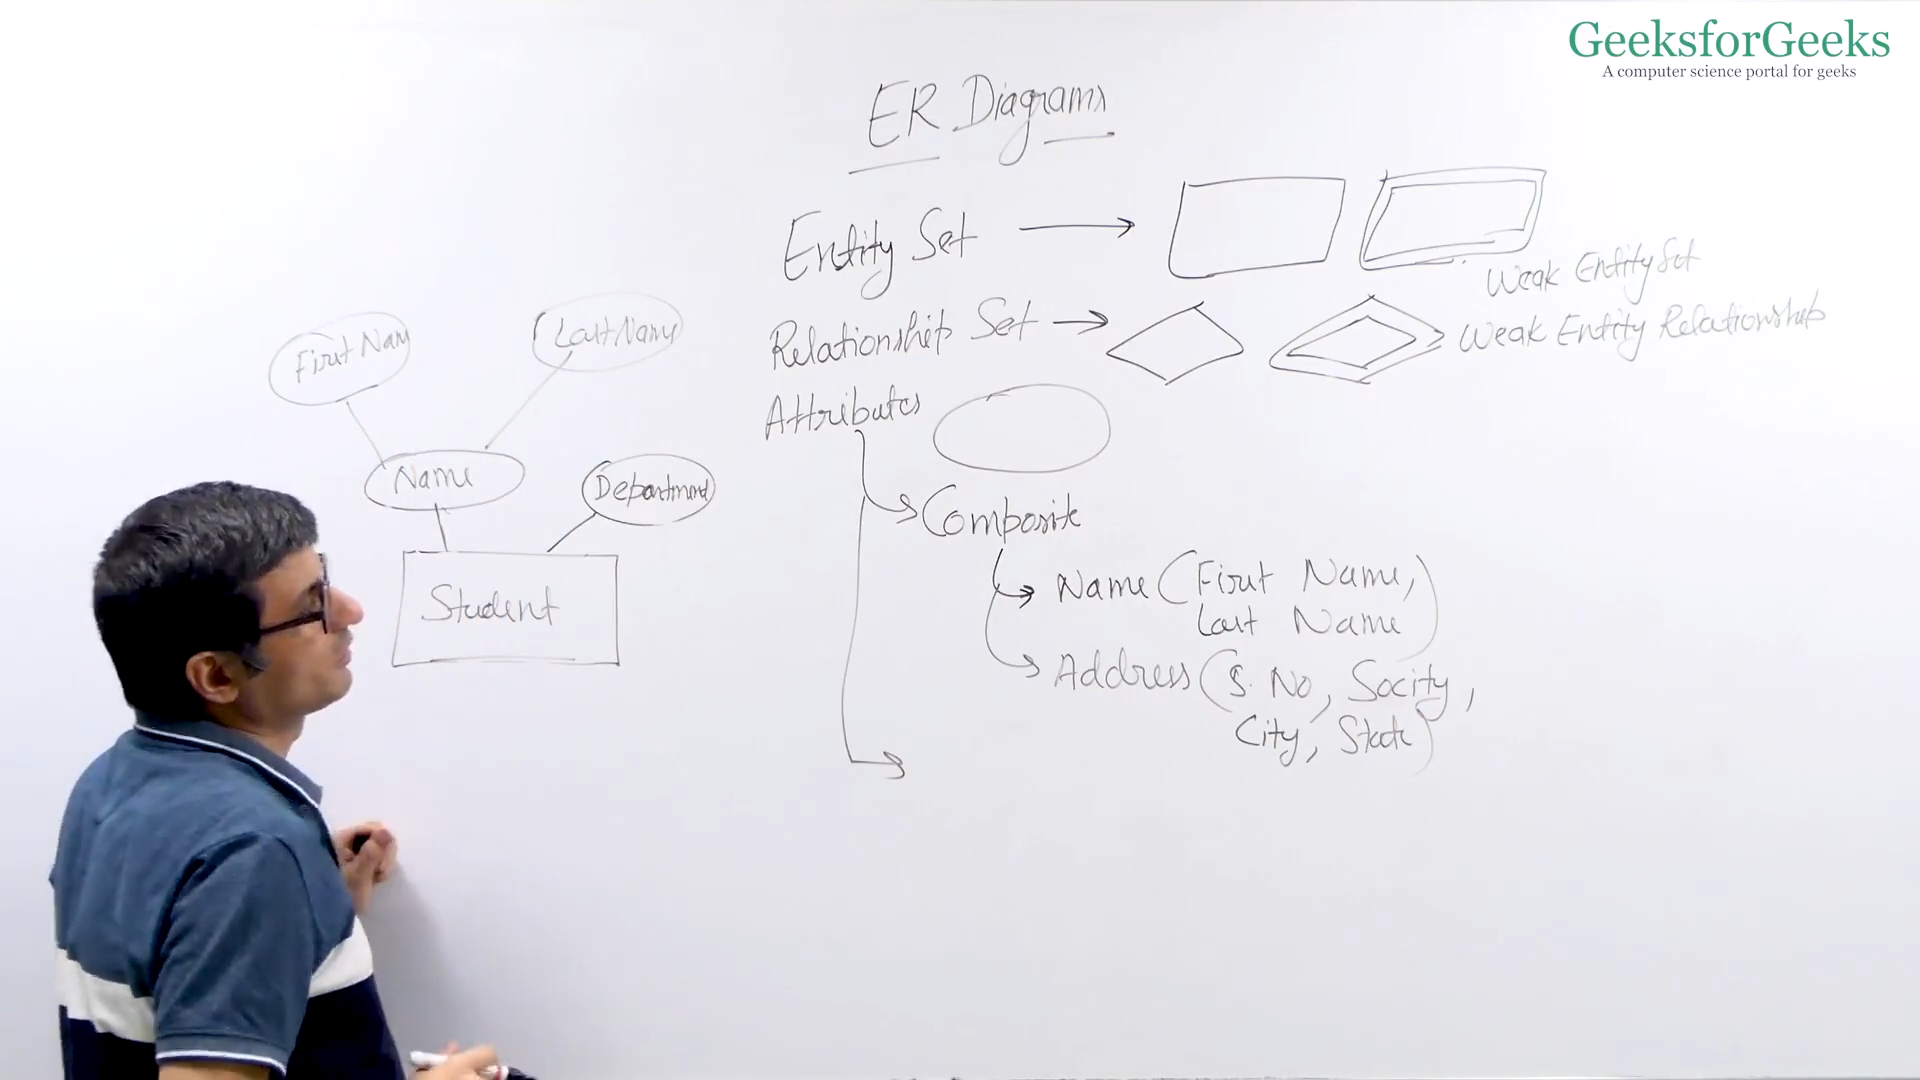 GeeksforGeeks
A computer science portal for geeks
ER Diagrams
Entity Set
Weak Entity Set
Relationship Set
Weak Entity Relationship
Attributes
Composite
Name (First Name,
Last Name)
Address (S. No, Socity,
City, State)
First Nam
Last Name
Name
Department
Student